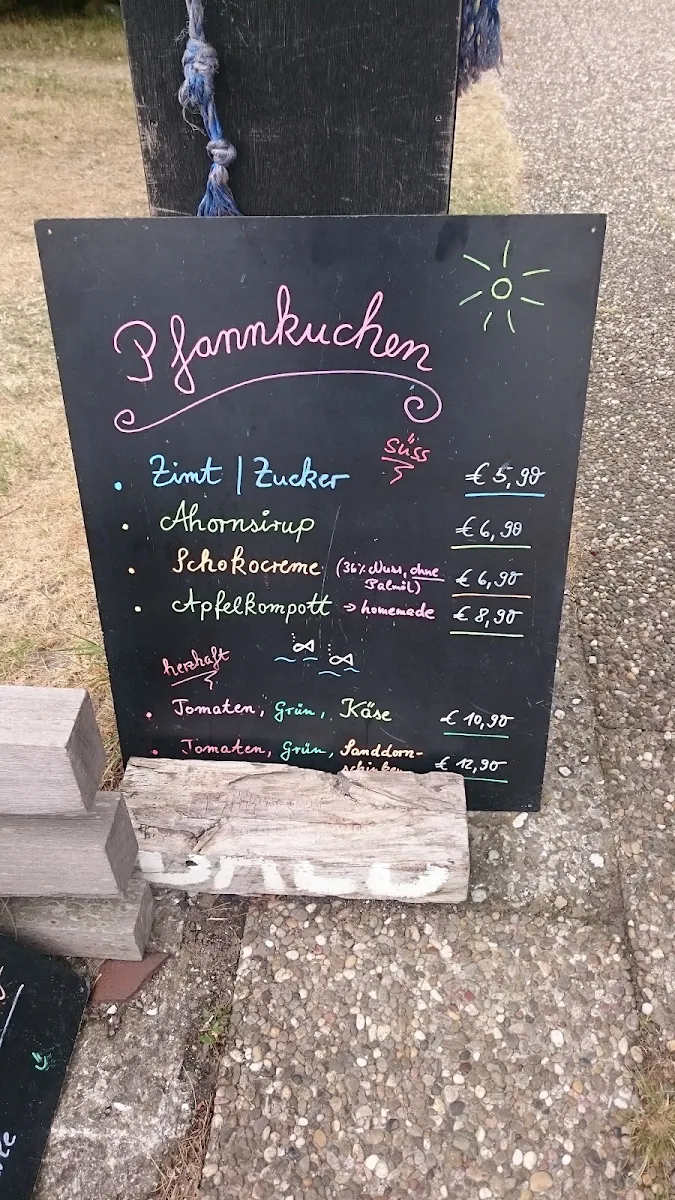 Pfannkuchen
süss
• Zimt | Zucker € 5,90
• Ahornsirup € 6,90
• Schokocreme (36% Nuss, ohne Palmöl) € 6,90
• Apfelkompott → homemade € 8,90
herzhaft
• Tomaten, Grün, Käse € 10,90
• Tomaten, Grün, Sanddorn-
schinken € 12,90